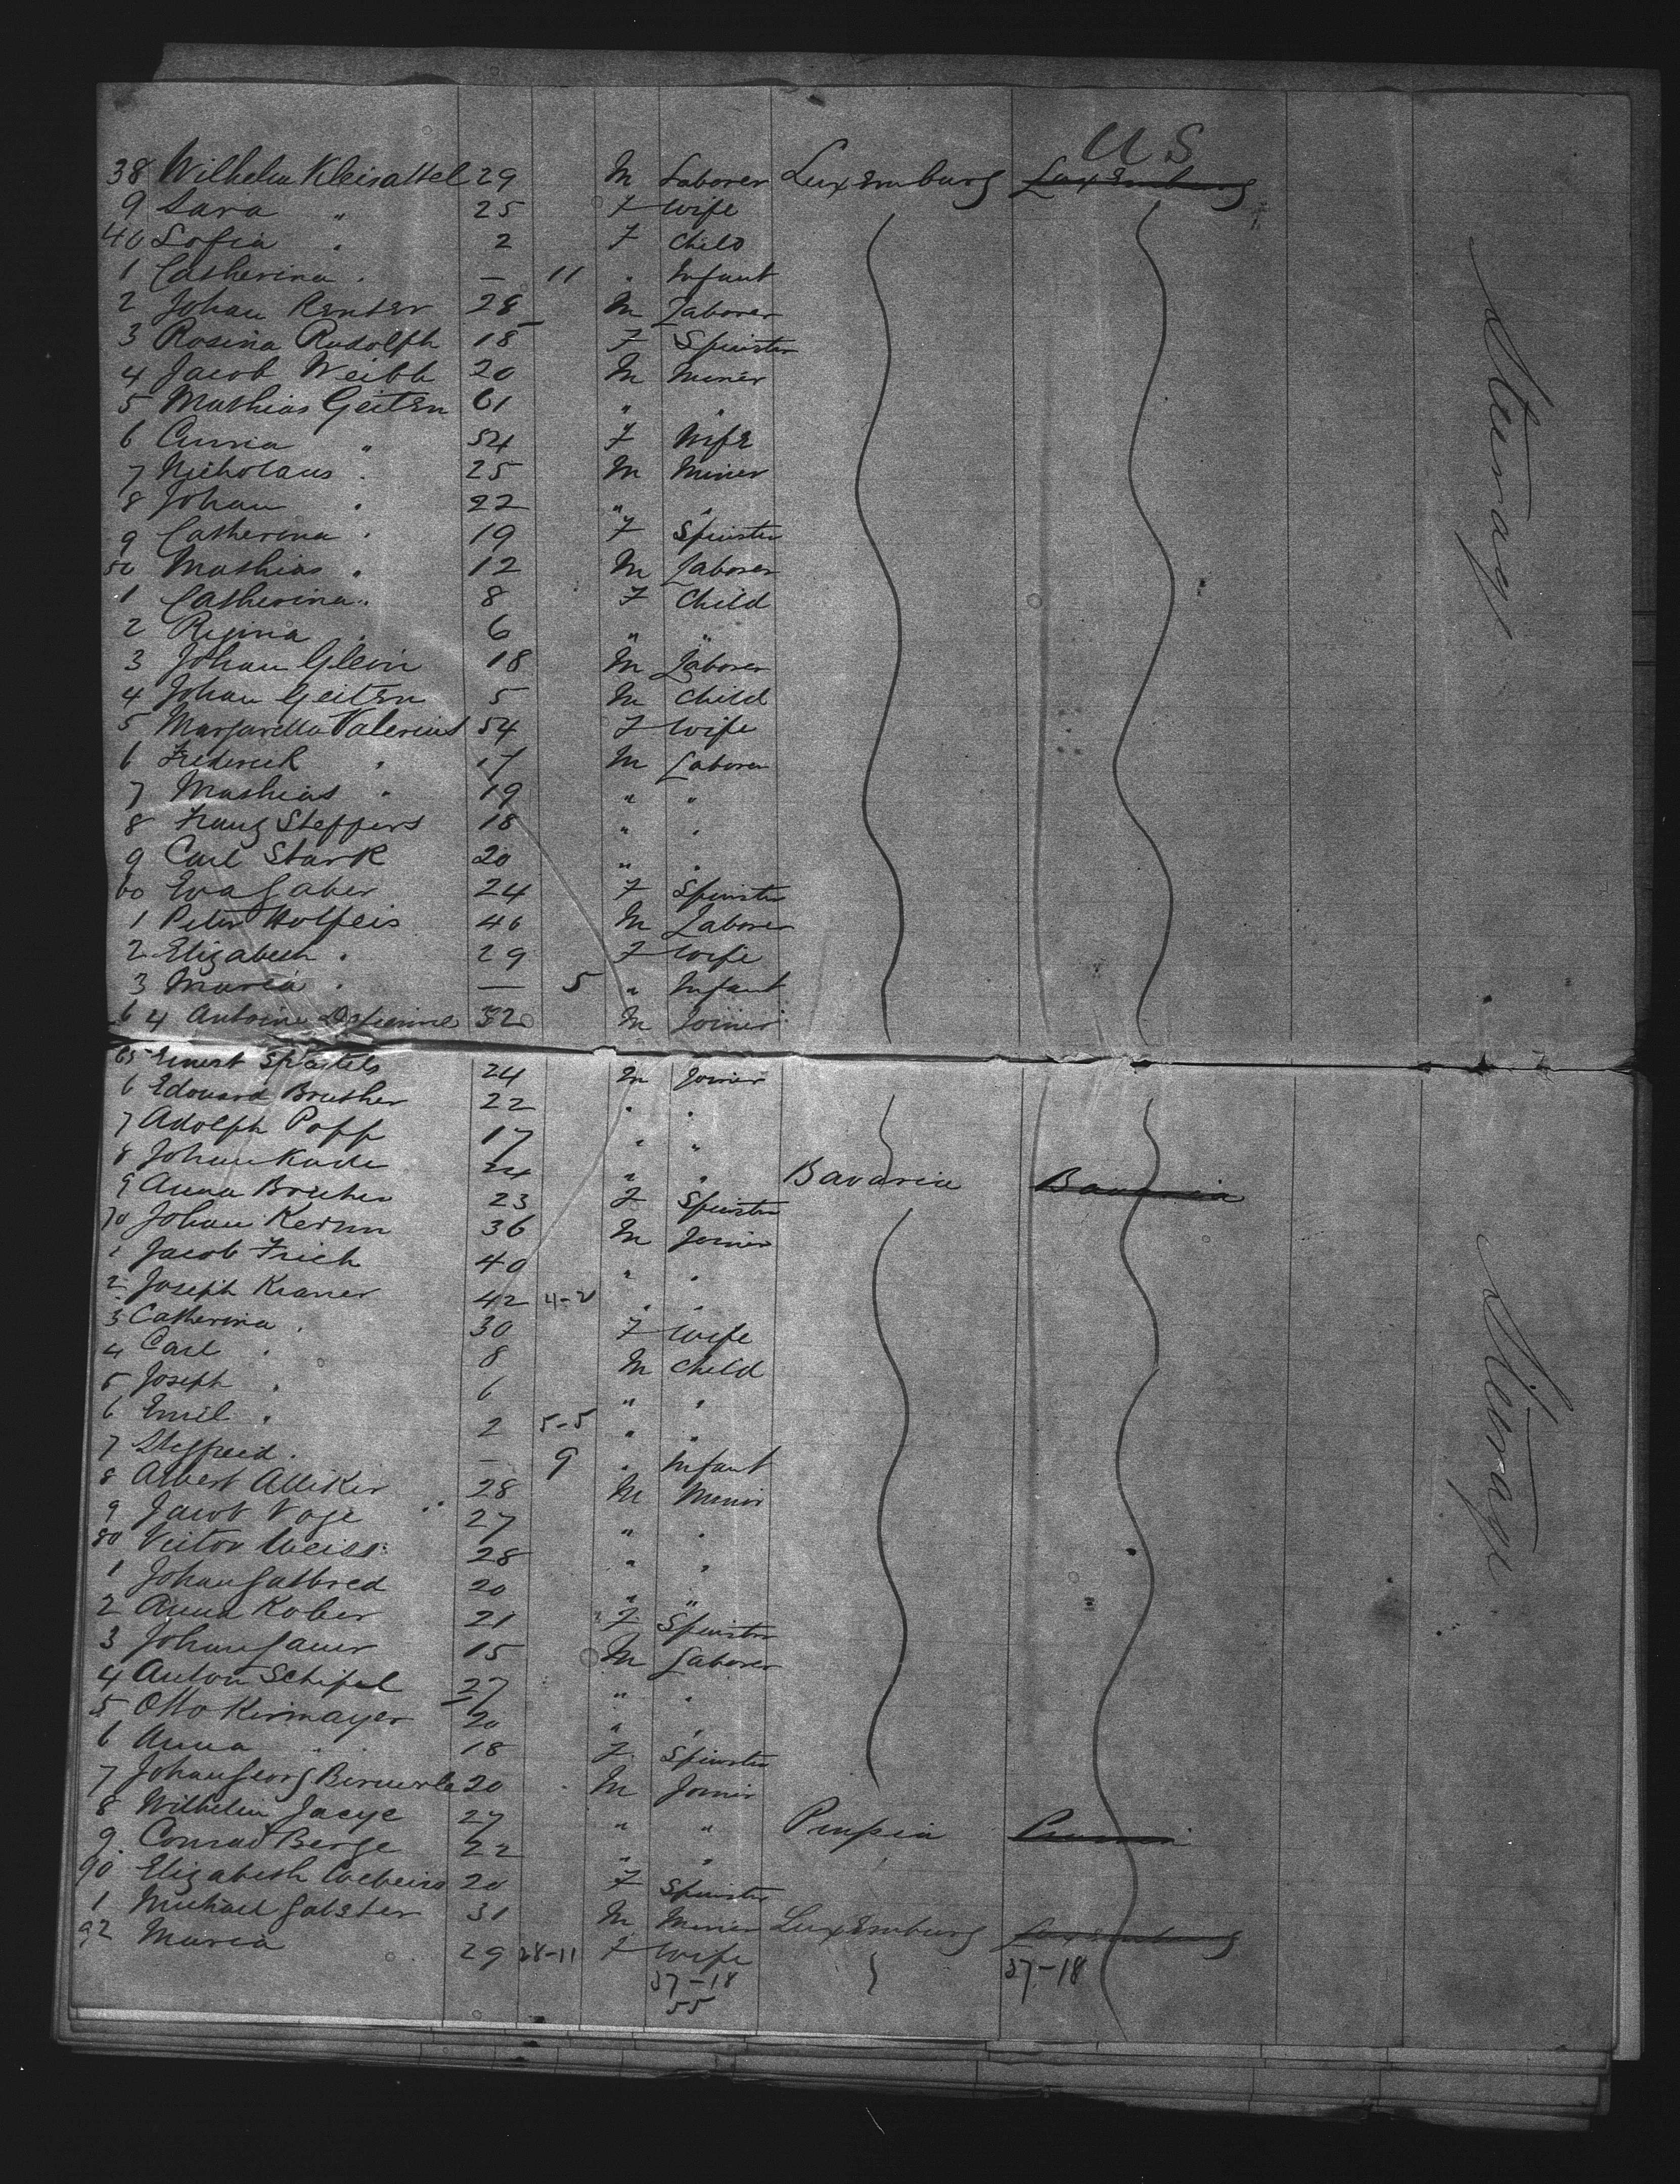 U S
38 Wilhelm Kleisattel 29 M Laborer Luxemburg Luxemburg
9 Sara " 25 F Wife
40 Sofia " 2 F Child
1 Catherina " — 11 " Infant
2 Johan Renter 28 M Laborer
3 Rosina Rudolph 18 F Spinster
4 Jacob Weibb 20 M Miner
5 Mathias Geiten 61 " "
6 Anna " 54 F Wife
7 Nicholaus " 25 M Miner
8 Johan " 22 " "
9 Catherina " 19 F Spinster
50 Mathias " 12 M Laborer
1 Catherina " 8 F Child
2 Regina " 6 " "
3 Johan Glein 18 M Laborer
4 Johan Geiten 5 M Child
5 Margaretta Valerius 54 F Wife
6 Frederick " 17 M Laborer
7 Mathias " 19 " "
8 Franz Steffens 18 " "
9 Carl Stark 20 " "
60 Eva Gaber 24 F Spinster
1 Peter Holpeis 46 M Laborer
2 Elizabeth " 29 F Wife
3 Maria " — 5 " Infant
64 Antoine 32 M Joiner
65 Ernest 24 M Joiner
6 Edouard Bruther 22 " "
7 Adolph Popp 17 " "
8 Johan Kade 24 " " Bavaria Bavaria
9 Anna Bruther 23 F Spinster
70 Johan Kernn 36 M Joiner
1 Jacob Frich 40 " "
2 Joseph Kraner 42 4-2 " "
3 Catherina " 30 F Wife
4 Carl " 8 M Child
5 Joseph " 6 " "
6 Emil " 2 5-5 " "
7 Stegfreid " — 9 " Infant
8 Albert Alliker 28 M Miner
9 Jacob Voge 27 " "
80 Victor Weiss 28 " "
1 Johan Galbred 20 " "
2 Anna Kober 21 F Spinster
3 Johan Sauer 15 M Laborer
4 Anton Schipel 27 " "
5 Otto Kirmayer 20 " "
6 Anna " 18 F Spinster
7 Johan Georg 20 M Joiner
8 Wilhelm Jacye 27 " " Prussia Prussia
9 Conrad Berge 22 " "
90 Elizabeth 20 F Spinster
1 Michael Galster 31 M Miner Luxemburg Luxemburg
92 Maria 29 28-11 F Wife
37-18 37-18
55
Steerage
Steerage